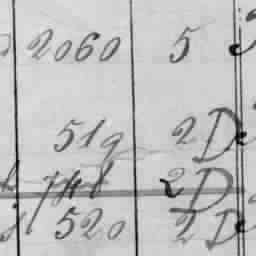 2060 5
519 2 De
2 D
520 2 De